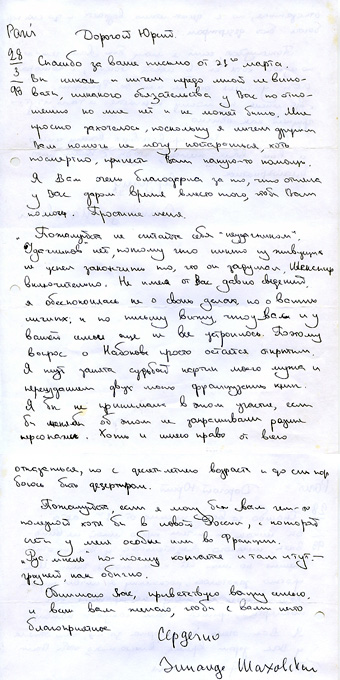 Paris
28
3
98
Дорогой Юрий.
Спасибо за ваше письмо от 23го марта.
Вы никак и ничем передо мной не вино-
ваты, никакого обязательства у Вас по отно-
шению ко мне нет и не может быть. Мне
просто захотелось, поскольку я ничем другим
Вам помочь не могу, попытаться, хоть
посмертно, принести Вам какую-то помощь.
Я Вам очень благодарна за то, что отняла
у Вас даром время вместо того, чтоб Вам
помочь. Простите меня.
Пожалуйста не считайте себя "неудачником".
"Удачников" нет, потому что никто из живущих
не успел закончить то, что он задумал, Шекспир
включительно. Не имея от Вас давно сведений
я обеспокоилась не о своих делах, но о вашей
жизни, и по письму вижу, что у вас и у
вашей семьи еще не все устроилось. Поэтому
вопрос о Набокове просто остается открытым.
Я тут занята судьбой картин моего мужа и
переизданием двух моих французских книг.
Я бы не принимала в этом участие, если
бы об этом не запрашивали разные
персонажи. Хоть и имею право от всего
отказаться, но с десятилетнего возраста и до сих пор
боюсь быть дезертиром.
Пожалуйста, если я могу быть вам чем-то
полезной хотя бы в новой России, с которой
связи у меня особые или во Франции.
"Рус. мысль" по-моему кончается и там и тут.
грущу, как обычно.
Обнимаю Вас, приветствую вашу семью,
и всем вам желаю, чтобы с вами было
благоприятное
Сердечно
Зинаида Шаховская